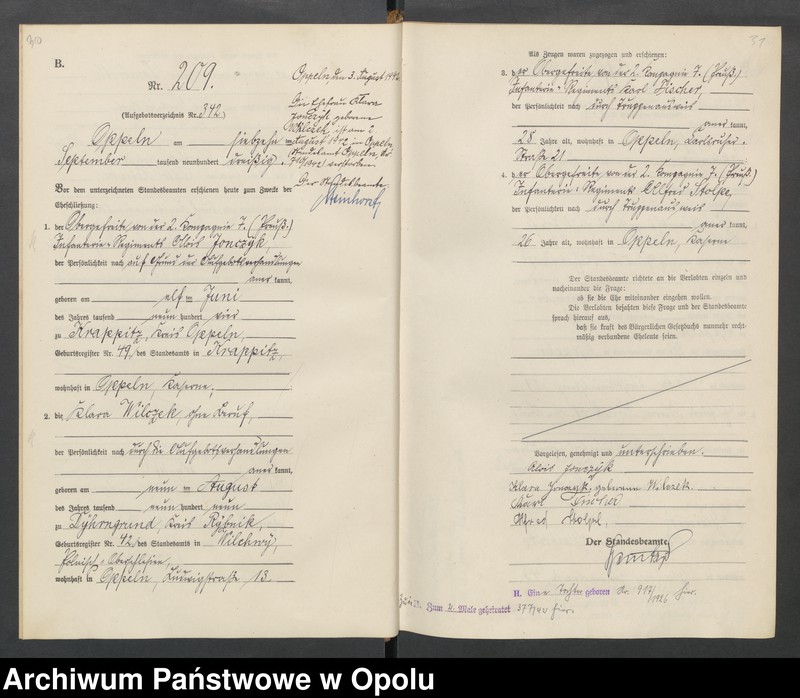 B.
Nr. 209.
(Aufgebotsverzeichnis Nr. 342.)
Oppeln, den 3. August
Die Ehefrau Klara
Jonczyk geborene
Wilczek ist am 2.
August in Oppeln
Standesamt Oppeln, Nr.
verstorben.
Der Standesbeamte
Oppeln am siebzehn ten
September tausend neunhundert dreißig.
Vor dem unterzeichneten Standesbeamten erschienen heute zum Zwecke der
Eheschließung:
1. der Obergefreite von der 2. Kompagnie 7. (Preuß.)
Infanterie-Regiments Alois Jonczyk,
der Persönlichkeit nach auf Grund der Aufgebotsverhandlungen
anerkannt,
geboren am elf ten Juni
des Jahres tausend neun hundert vier
zu Krappitz, Kreis Oppeln,
Geburtsregister Nr. 49, des Standesamts in Krappitz,
wohnhaft in Oppeln, Kaserne,
2. die Klara Wilczek, ohne Beruf,
der Persönlichkeit nach durch die Aufgebotsverhandlungen
anerkannt,
geboren am neun ten August
des Jahres tausend neun hundert neun
zu Dyhrngrund, Kreis Rybnik,
Geburtsregister Nr. 42, des Standesamts in Wilchwy,
Polnisch-Oberschlesien,
wohnhaft in Oppeln, Ludwigstraße 13.
31
Als Zeugen waren zugezogen und erschienen:
3. der Obergefreite von der 2. Kompagnie 7. (Preuß.)
Infanterie-Regiments Karl Fischer,
der Persönlichkeit nach durch Truppenausweis
anerkannt,
25 Jahre alt, wohnhaft in Oppeln, Karlsruher-
Straße 21
4. der Obergefreite von der 2. Kompagnie 7. (Preuß.)
Infanterie-Regiments Alfred Stolpe,
der Persönlichkeit nach durch Truppenausweis
anerkannt,
26 Jahre alt, wohnhaft in Oppeln, Kaserne
Der Standesbeamte richtete an die Verlobten einzeln und
nacheinander die Frage:
ob sie die Ehe miteinander eingehen wollen.
Die Verlobten bejahten diese Frage und der Standesbeamte
sprach hierauf aus,
daß sie kraft des Bürgerlichen Gesetzbuchs nunmehr recht-
mäßig verbundene Eheleute seien.
Vorgelesen, genehmigt und unterschrieben.
Alois Jonczyk
Klara Jonczyk, geborene Wilczek.
Karl Fischer
Alfred Stolpe,
Der Standesbeamte
II. Eine Tochter geboren Nr. 917/1926 hier.
Zum 2. Male geheiratet 577/42 hier.
Archiwum Państwowe w Opolu